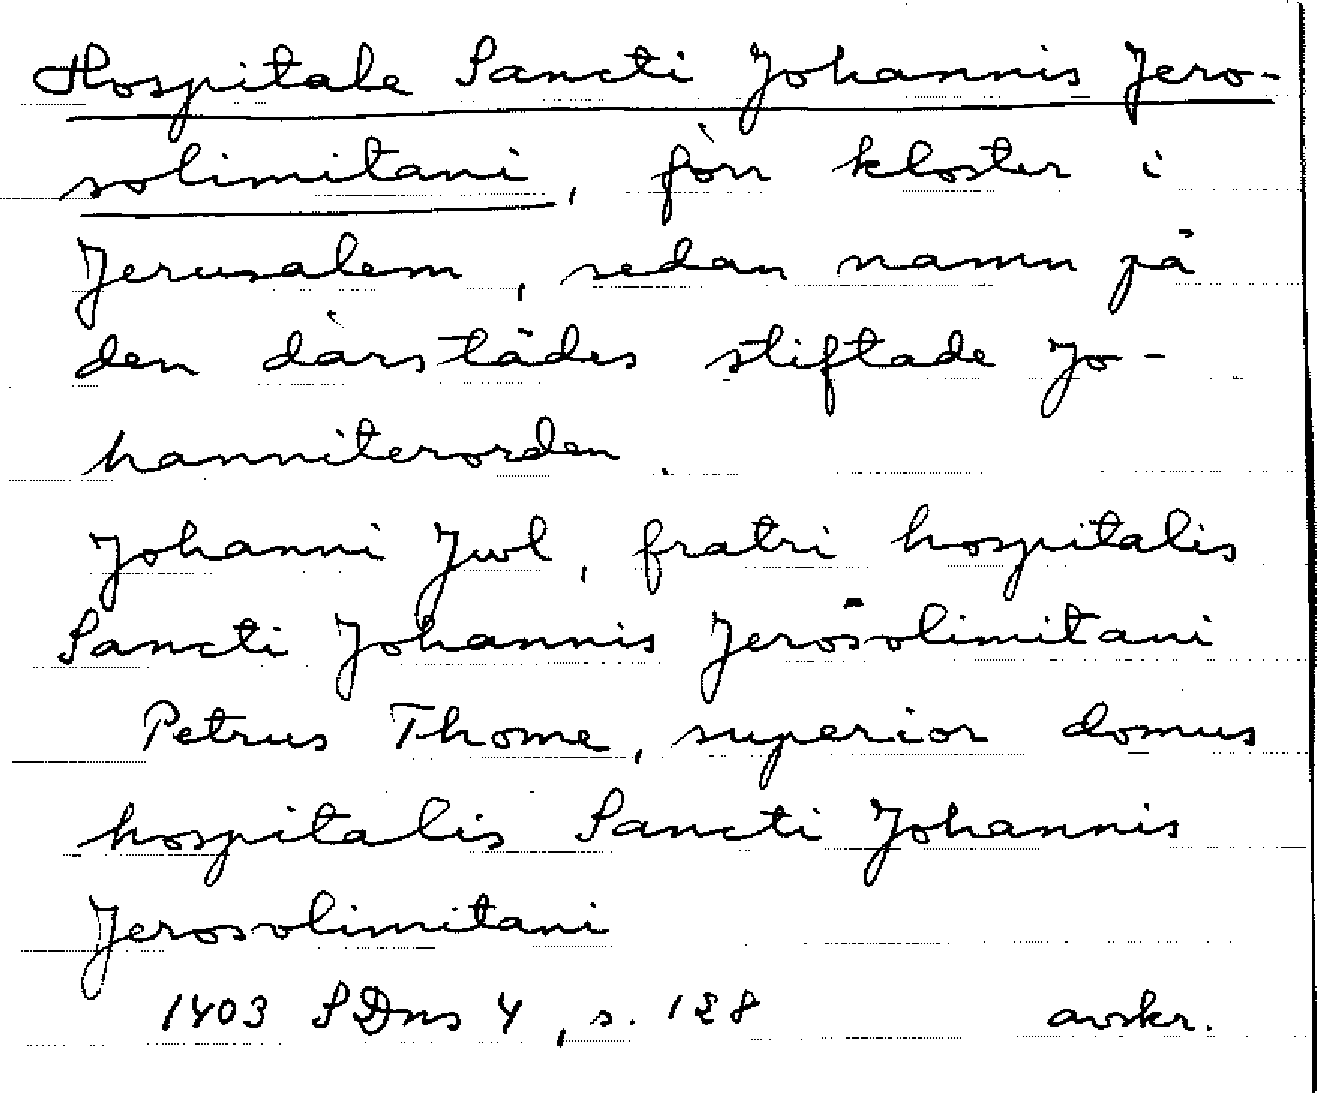 Hospitale Sancti Johannis Jero-
solimitani, förr kloster i
Jerusalem, sedan namn på
den därstädes stiftade Jo-
hanniterorden.
Johanni Jwl, fratri hospitalis
Sancti Johannis Jerosolimitani
Petrus Thome, superior domus
hospitalis Sancti Johannis
Jerosolimitani
1403 SDns 4, s. 128 avskr.